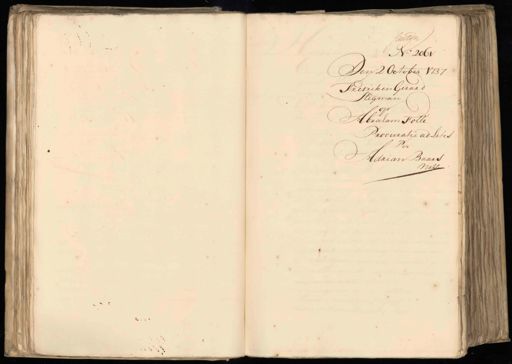 Den 2 October 1737
Fredriken Geraad
Stegman
op
Abraham Folte
Procuratie ad Lites
Por
Adriaan Baars
Notts